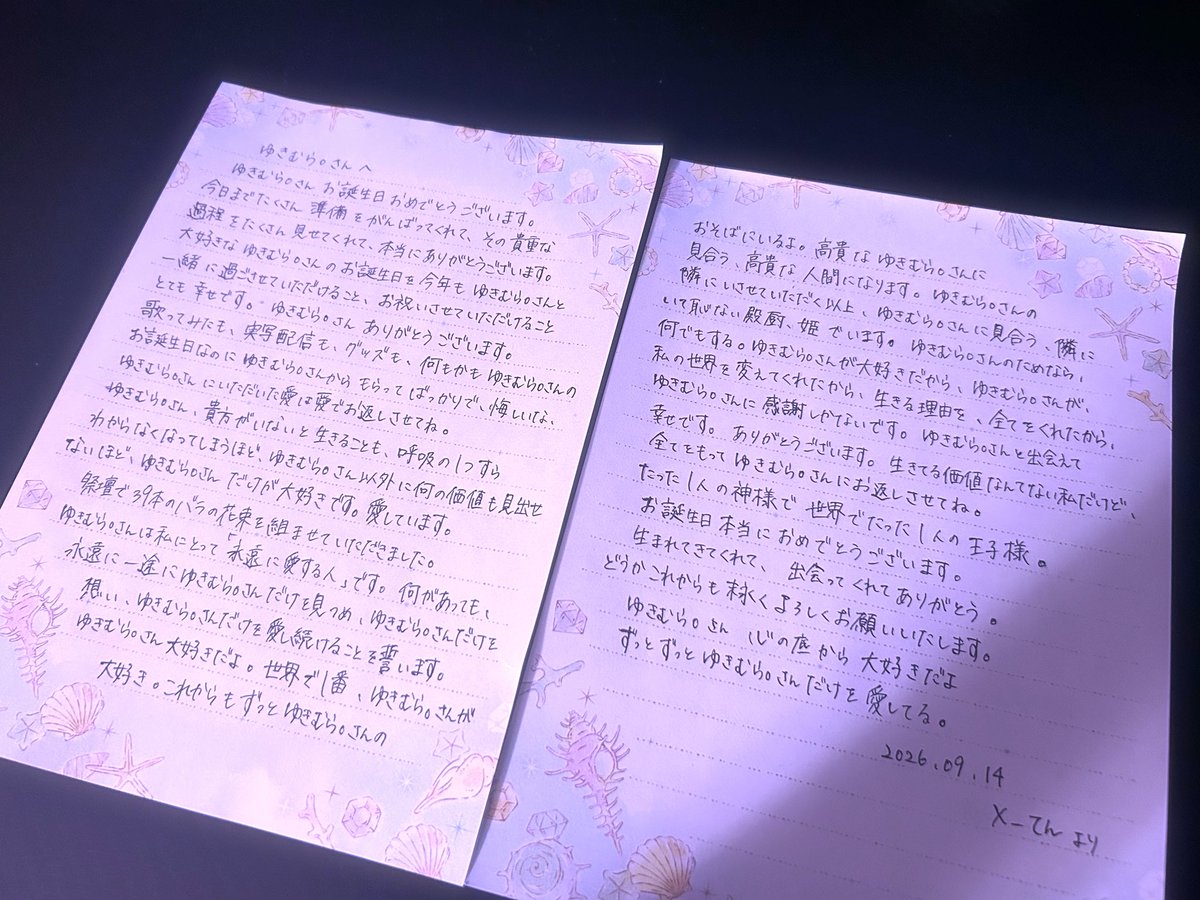 ゆきむら。さんへ
ゆきむら。さん お誕生日おめでとうございます。
今日までたくさん準備をがんばってくれて、その貴重な
過程をたくさん見せてくれて、本当にありがとうございます。
大好きなゆきむら。さんのお誕生日を今年もゆきむら。さんと
一緒に過ごさせていただけること、お祝いさせていただけること
とても幸せです。ゆきむら。さんありがとうございます。
歌ってみたも、実写配信も、グッズも、何もかもゆきむら。さんの
お誕生日なのにゆきむら。さんからもらってばっかりで、悔しいな、
ゆきむら。さんにいただいた愛は愛でお返しさせてね。
ゆきむら。さん、貴方がいないと生きることも、呼吸の1つすら
わからなくなってしまうほど、ゆきむら。さん以外に何の価値も見出せ
ないほど、ゆきむら。さんだけが大好きです。愛しています。
祭壇で39本のバラの花束を組ませていただきました。
ゆきむら。さんは私にとって「永遠に愛する人」です。何があっても、
永遠に一途にゆきむら。さんだけを見つめ、ゆきむら。さんだけを
想い、ゆきむら。さんだけを愛し続けることを誓います。
ゆきむら。さん大好きだよ。世界で1番、ゆきむら。さんが
大好き。これからもずっとゆきむら。さんの
おそばにいるよ。高貴なゆきむら。さんに
見合う、高貴な人間になります。ゆきむら。さんの
隣にいさせていただく以上、ゆきむら。さんに見合う、隣に
いて恥ない殿厨、姫でいます。ゆきむら。さんのためなら、
何でもする。ゆきむら。さんが大好きだから、ゆきむら。さんが、
私の世界を変えてくれたから、生きる理由を、全てをくれたから、
ゆきむら。さんに感謝しかないです。ゆきむら。さんと出会えて
幸せです。ありがとうございます。生きてる価値なんてない私だけど、
全てをもってゆきむら。さんにお返しさせてね。
たった1人の神様で世界でたった1人の王子様。
お誕生日本当におめでとうございます。
生まれてきてくれて、出会ってくれてありがとう。
どうかこれからも末永くよろしくお願いいたします。
ゆきむら。さん 心の底から大好きだよ
ずっとずっとゆきむら。さんだけを愛してる。
2026.09.14
メーてんより